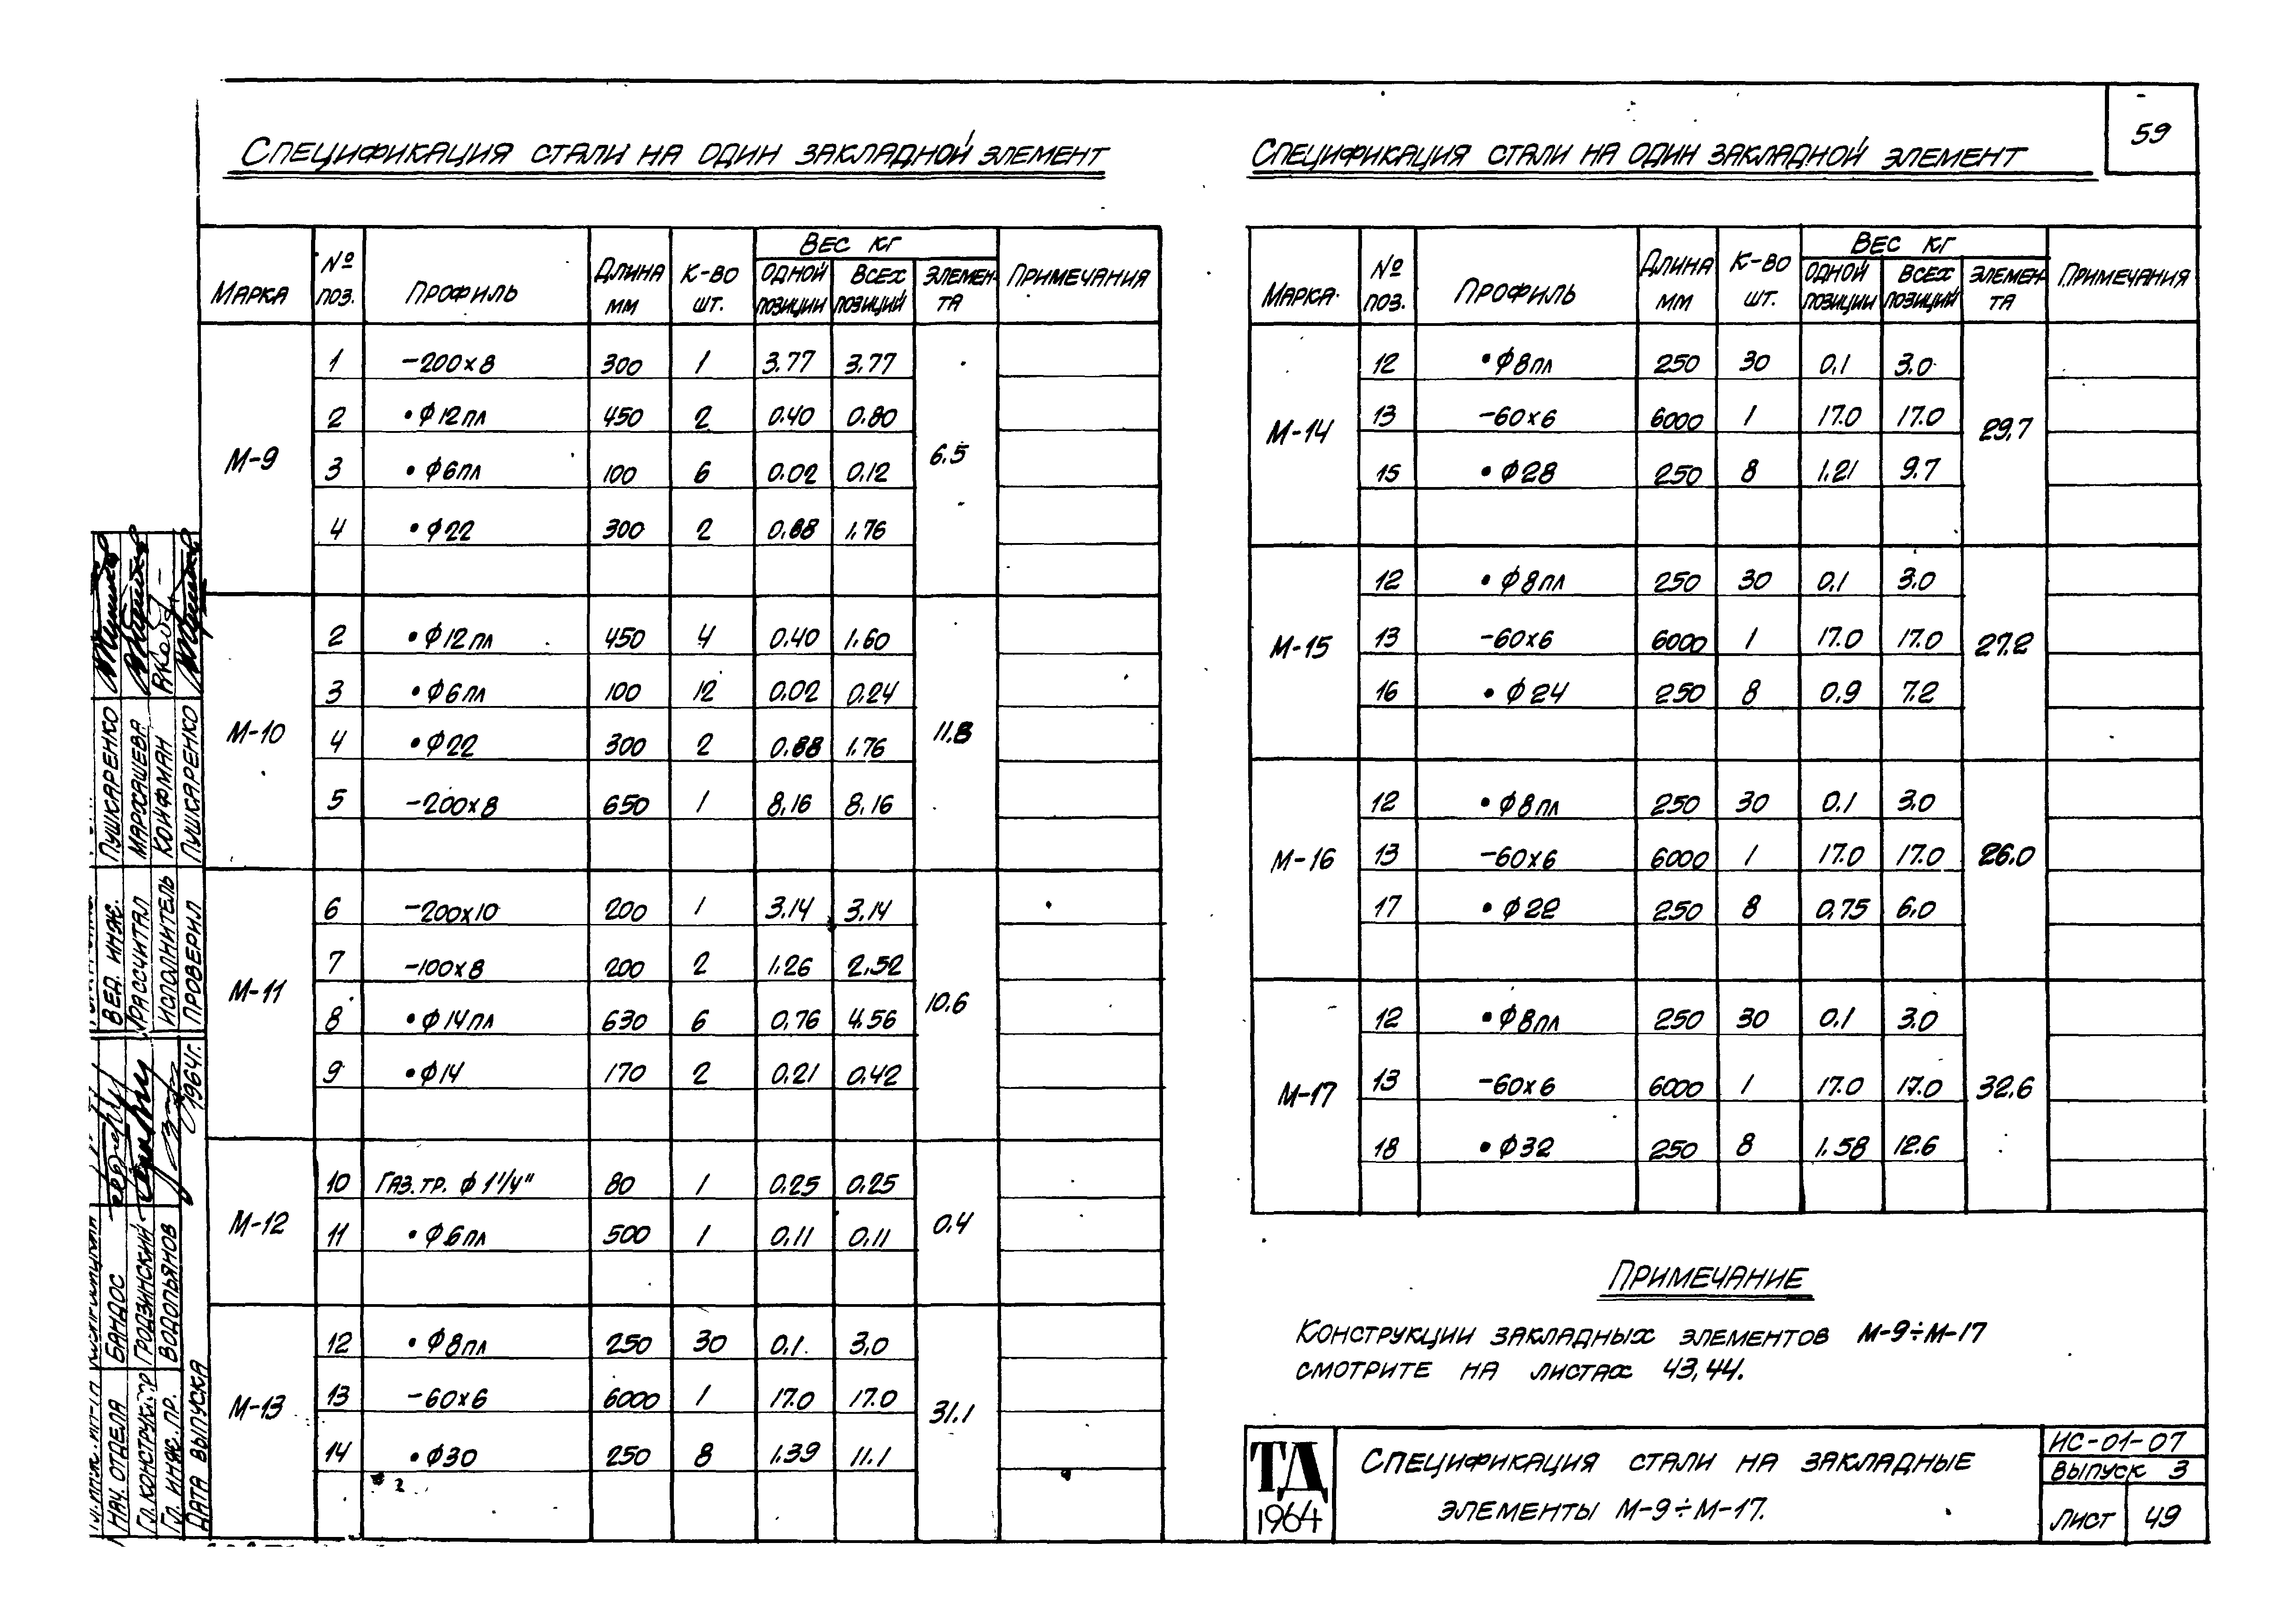 59
Спецификация стали на один закладной элемент
Марка № поз. Профиль Длина мм К-во шт. Вес кг одной позиции всех позиций элемента Примечания
М-9 6.5
1 -200×8 300 1 3.77 3.77
2 •Ф12пл 450 2 0.40 0.80
3 •Ф6пл 100 6 0.02 0.12
4 •Ф22 300 2 0.88 1.76
М-10 11.8
2 •Ф12пл 450 4 0.40 1.60
3 •Ф6пл 100 12 0.02 0.24
4 •Ф22 300 2 0.88 1.76
5 -200×8 650 1 8.16 8.16
М-11 10.6
6 -200×10 200 1 3.14 3.14
7 -100×8 200 2 1.26 2.52
8 •Ф14пл 630 6 0.76 4.56
9 •Ф14 170 2 0.21 0.42
М-12 0.4
10 Газ. тр. Ф 1 1/4" 80 1 0.25 0.25
11 •Ф6пл 500 1 0.11 0.11
М-13 31.1
12 •Ф8пл 250 30 0.1 3.0
13 -60×6 6000 1 17.0 17.0
14 •Ф30 250 8 1.39 11.1
Спецификация стали на один закладной элемент
Марка № поз. Профиль Длина мм К-во шт. Вес кг одной позиции всех позиций элемента Примечания
М-14 29.7
12 •Ф8пл 250 30 0.1 3.0
13 -60×6 6000 1 17.0 17.0
15 •Ф28 250 8 1.21 9.7
М-15 27.2
12 •Ф8пл 250 30 0.1 3.0
13 -60×6 6000 1 17.0 17.0
16 •Ф24 250 8 0.9 7.2
М-16 26.0
12 •Ф8пл 250 30 0.1 3.0
13 -60×6 6000 1 17.0 17.0
17 •Ф22 250 8 0.75 6.0
М-17 32.6
12 •Ф8пл 250 30 0.1 3.0
13 -60×6 6000 1 17.0 17.0
18 •Ф32 250 8 1.58 12.6
Примечание
Конструкции закладных элементов М-9÷М-17
смотрите на листах 43,44.
ТД
1964
Спецификация стали на закладные
элементы М-9÷М-17.
ИС-01-07
Выпуск 3
Лист 49
Вед. инж. Пушкаренко
Рассчитал Маросашева
Исполнитель Койфман
Проверил Пушкаренко
Нач. отдела Бандос
Гл. конструктор Гродзинский
Гл. инж. пр. Водопьянов
Дата выпуска 1964г.